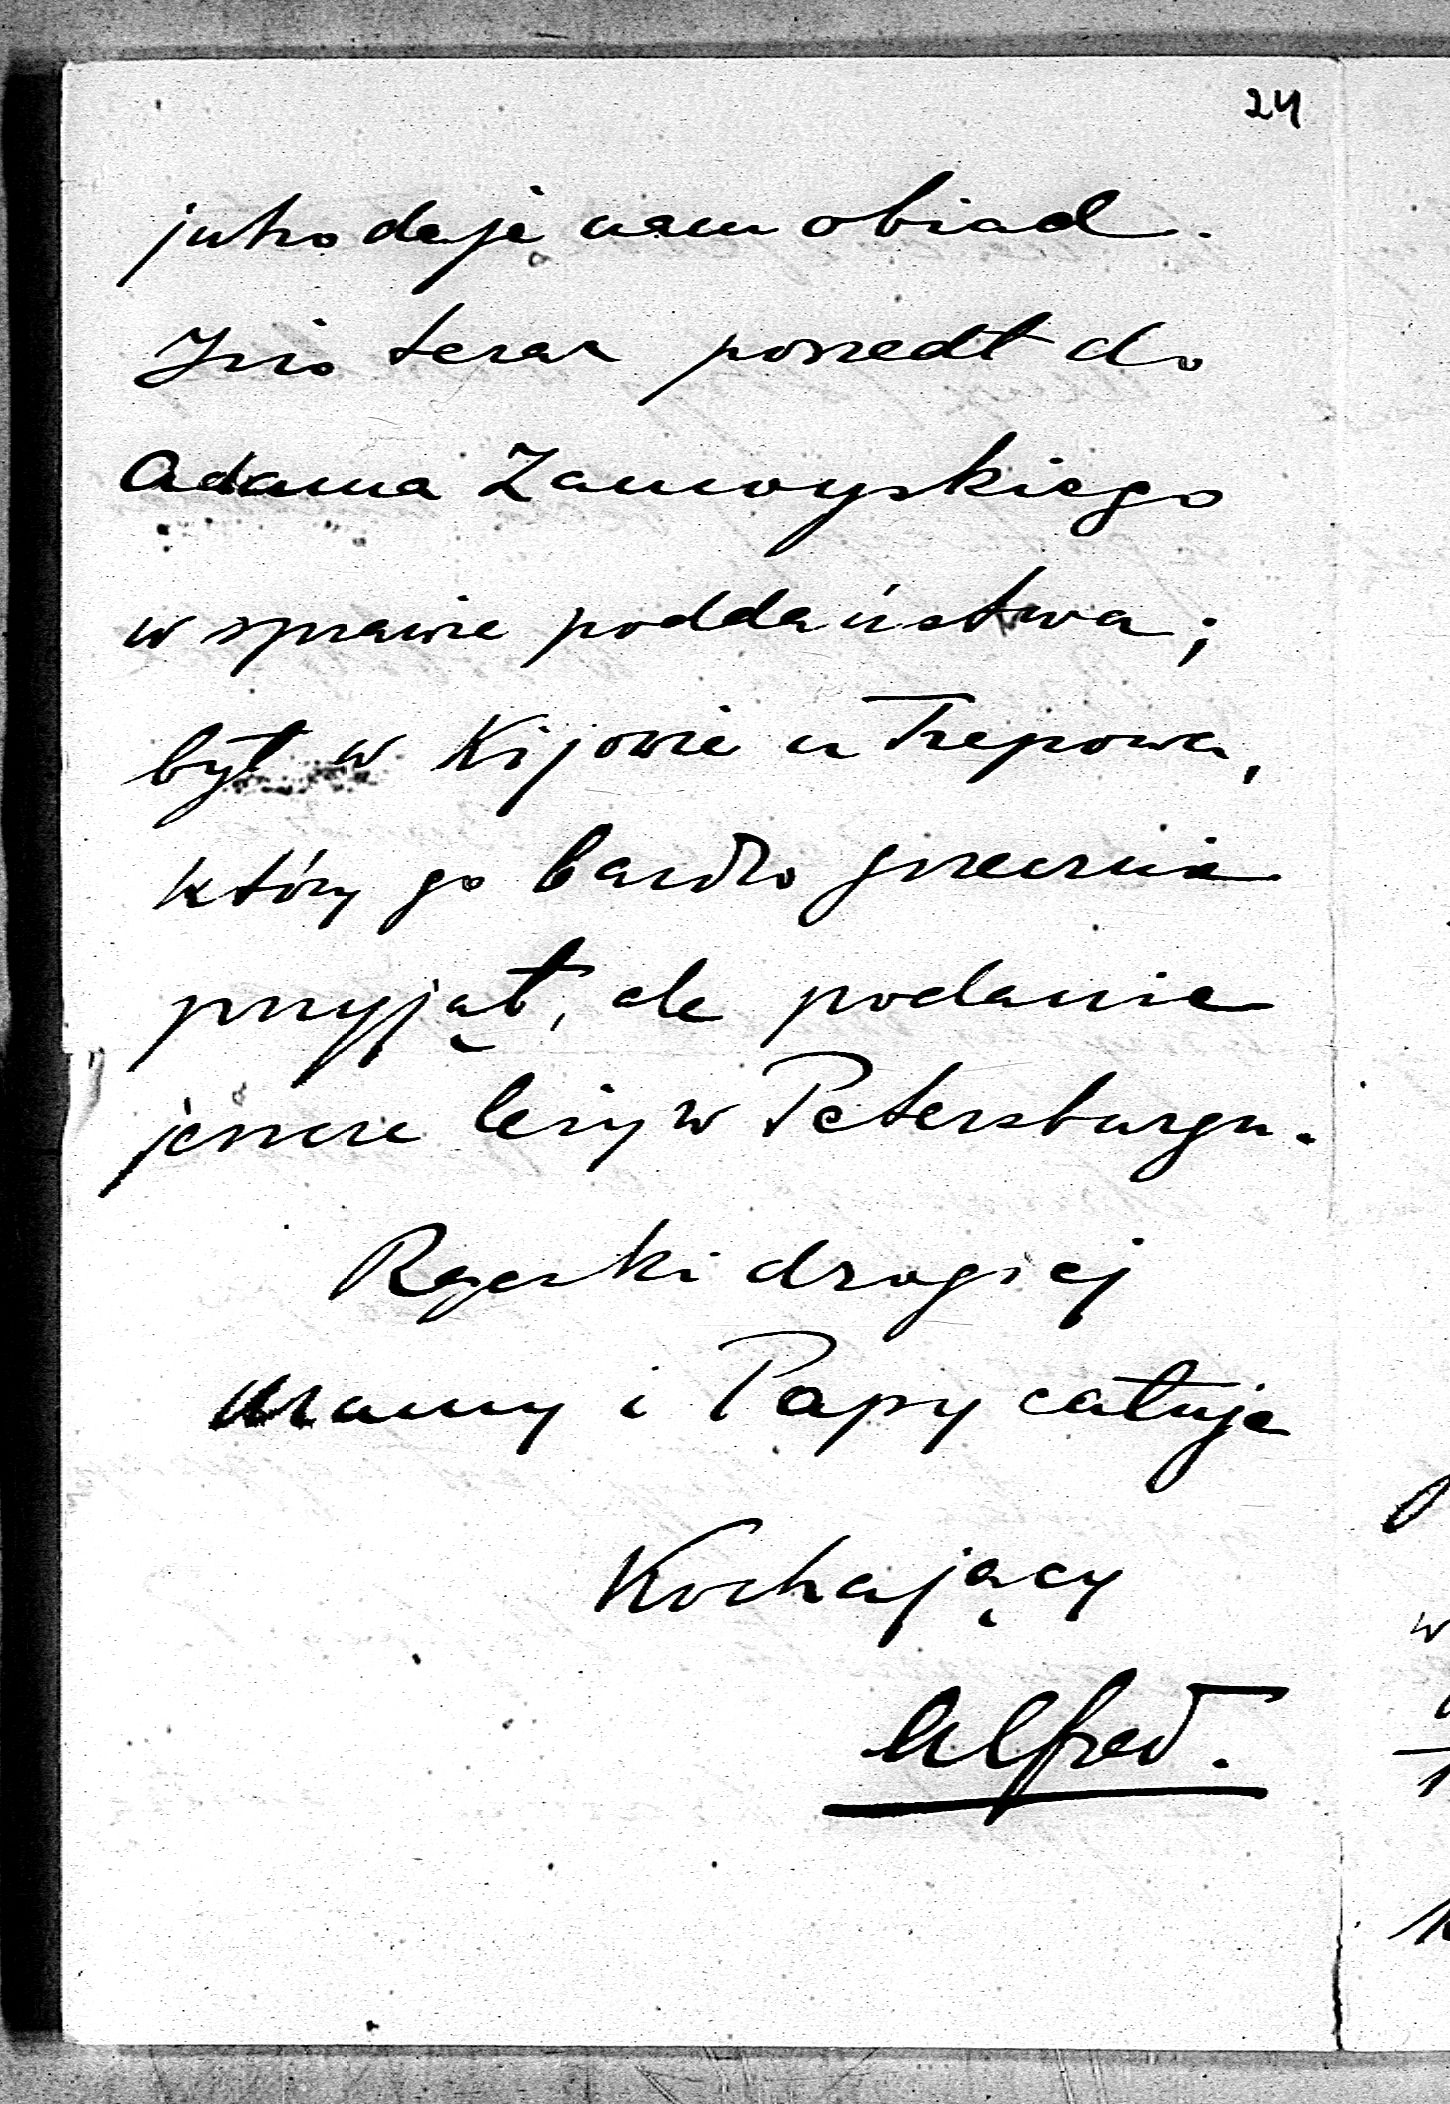 24
jutro daje nam obiad.
Józio teraz poszedł do
Adama Zamoyskiego
w sprawie poddaństwa;
był w Kijowie u Trepowa,
który go bardzo grzecznie
przyjął, ale podanie
jeszcze leży w Petersburgu.
Rączki drogiej
Mamy i Papy całuję
Kochający
Alfred.